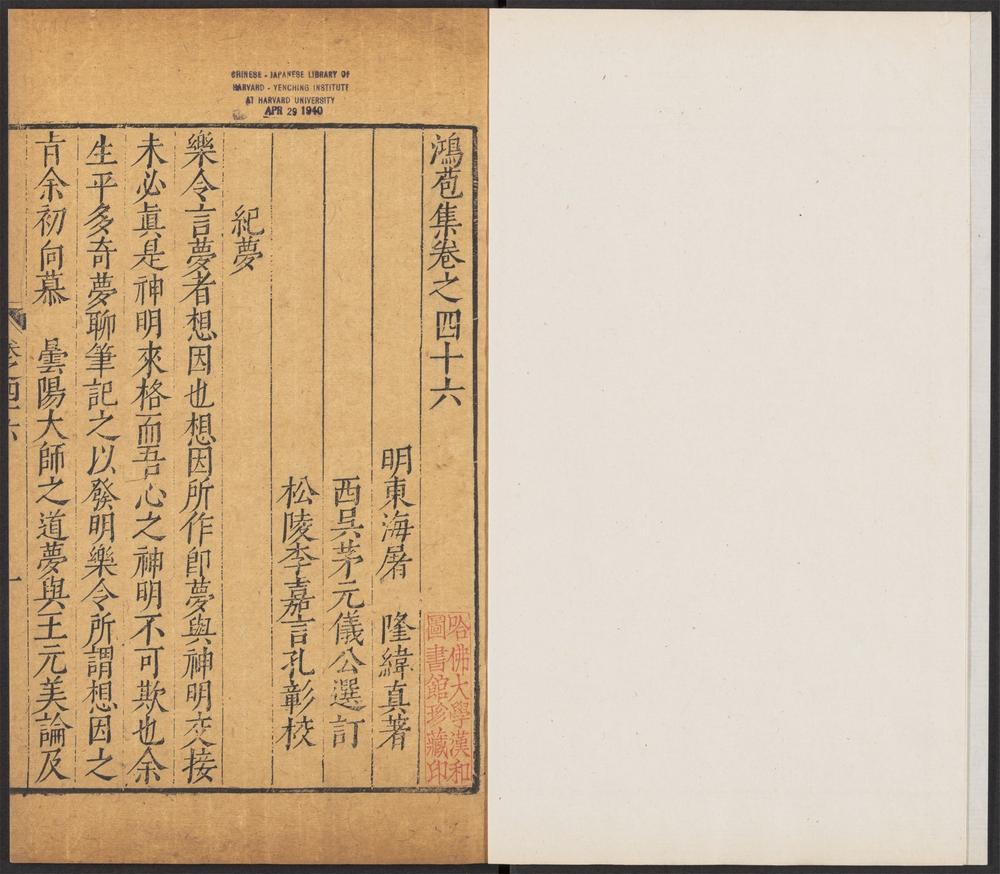 CHINESE - JAPANESE LIBRARY OF
HARVARD - YENCHING INSTITUTE
AT HARVARD UNIVERSITY
APR 29 1940
鴻苞集卷之四十六
明東海屠　隆緯真著
西吳茅元儀公選訂
松陵李嘉言孔彰校
紀夢
樂令言夢者想因也想因所作卽夢與神明交接
未必眞是神明來格而吾心之神明不可欺也余
生平多奇夢聊筆記之以發明樂令所謂想因之
旨余初向慕　曇陽大師之道夢與王元美論及
哈佛大學漢和
圖書館珍藏印
卷之四十六
一